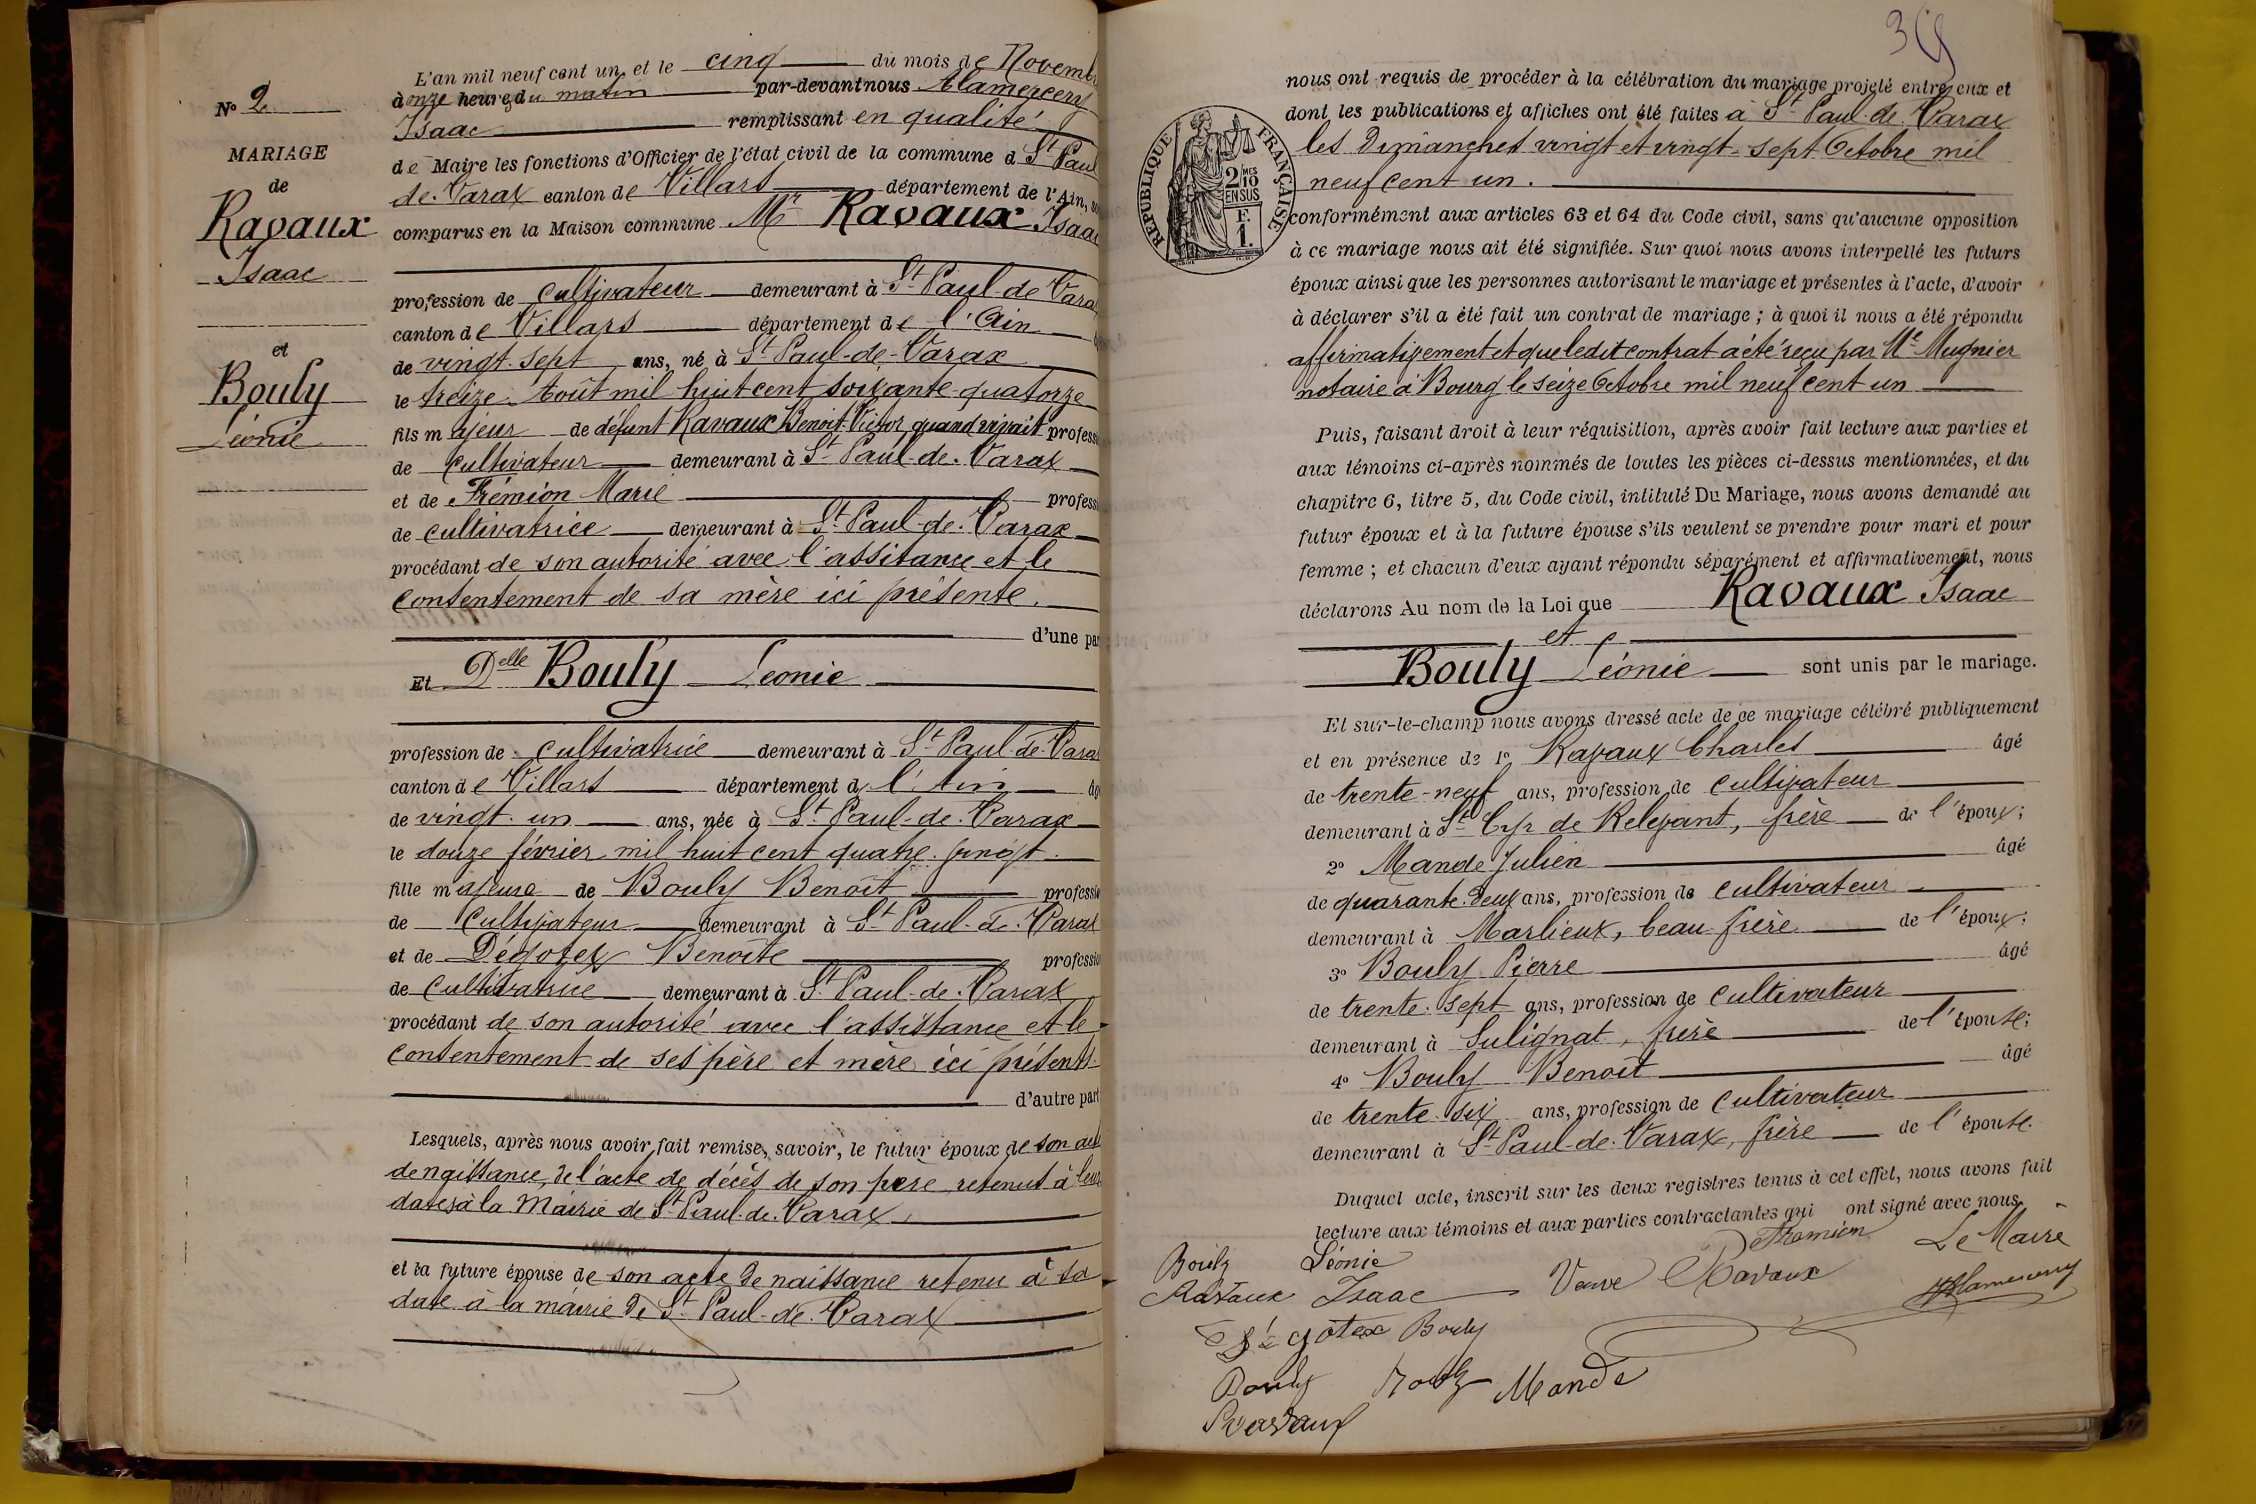 N° 2
MARIAGE
de
Ravaux
Isaac
et
Bouly
Léonie
L'an mil neuf cent un, et le cinq du mois de Novembre
à onze heures du matin par-devant nous Alamercery
Isaac remplissant en qualité
de Maire les fonctions d'Officier de l'état civil de la commune d St Paul
de Varax canton de Villars département de l'Ain,
comparus en la Maison commune Mr Ravaux Isaac
profession de cultivateur demeurant à St Paul-de Varax
canton de Villars département de l'Ain
de vingt-sept ans, né à St Paul-de-Varax
le treize Août mil huit cent soixante-quatorze
fils majeur de défunt Ravaux Benoît Victor quand vivait profess
de cultivateur demeurant à St Paul-de-Varax
et de Frémion Marie profess
de cultivatrice demeurant à St Paul-de-Varax
procédant de son autorité avec l'assitance et le
consentement de sa mère ici présente.
d'une par
Et Delle Bouly Léonie
profession de cultivatrice demeurant à St Paul-de-Varax
canton de Villars département de l'Ain âg
de vingt-un ans, née à St Paul-de-Varax
le douze février mil huit cent quatre-vingt.
fille majeure de Bouly Benoît professio
de cultivateur demeurant à St Paul-de-Varax
et de Dégotex Benoîte professio
de cultivatrice demeurant à St Paul-de-Varax
procédant de son autorité avec l'assistance et le
consentement de ses père et mère ici présents.
d'autre part
Lesquels, après nous avoir fait remise, savoir, le futur époux de son act
de naissance, de l'acte de décès de son père retenus à leur
dates à la Mairie de St Paul-de-Varax,
et la future épouse de son acte de naissance retenu à sa
date à la mairie de St Paul-de-Varax
RÉPUBLIQUE FRANÇAISE
2 MES
10
EN SUS
F.
1.
nous ont requis de procéder à la célébration du mariage projeté entre eux et
dont les publications et affiches ont été faites à St Paul-de-Varax
les Dimanches vingt et vingt-sept Octobre mil
neuf cent un.
conformément aux articles 63 et 64 du Code civil, sans qu'aucune opposition
à ce mariage nous ait été signifiée. Sur quoi nous avons interpellé les futurs
époux ainsi que les personnes autorisant le mariage et présentes à l'acte, d'avoir
à déclarer s'il a été fait un contrat de mariage ; à quoi il nous a été répondu
affirmativement et que ledit contrat a été reçu par Me Mugnier
notaire à Bourg le seize Octobre mil neuf cent un
Puis, faisant droit à leur réquisition, après avoir fait lecture aux parties et
aux témoins ci-après nommés de toutes les pièces ci-dessus mentionnées, et du
chapitre 6, titre 5, du Code civil, intitulé Du Mariage, nous avons demandé au
futur époux et à la future épouse s'ils veulent se prendre pour mari et pour
femme ; et chacun d'eux ayant répondu séparément et affirmativement, nous
déclarons Au nom de la Loi que Ravaux Isaac
et
Bouly Léonie sont unis par le mariage.
Et sur-le-champ nous avons dressé acte de ce mariage célébré publiquement
et en présence de 1° Ravaux Charles âgé
de trente-neuf ans, profession de cultivateur
demeurant à St Cyr de Relevant, frère de l'époux;
2° Mande Julien âgé
de quarante-deux ans, profession de cultivateur
demeurant à Marlieux, beau frère de l'époux;
3° Bouly Pierre âgé
de trente-sept ans, profession de cultivateur
demeurant à Sulignat, frère de l'épouse;
4° Bouly Benoît âgé
de trente-six ans, profession de cultivateur
demeurant à St Paul-de-Varax, frère de l'épouse.
Duquel acte, inscrit sur les deux registres tenus à cet effet, nous avons fait
lecture aux témoins et aux parties contractantes qui ont signé avec nous.
Bouly Léonie Fremion Le Maire
Ravaux Isaac Veuve Ravaux Alamercery
Dégotex Bouly
Bouly Bouly Mande
Ravaux